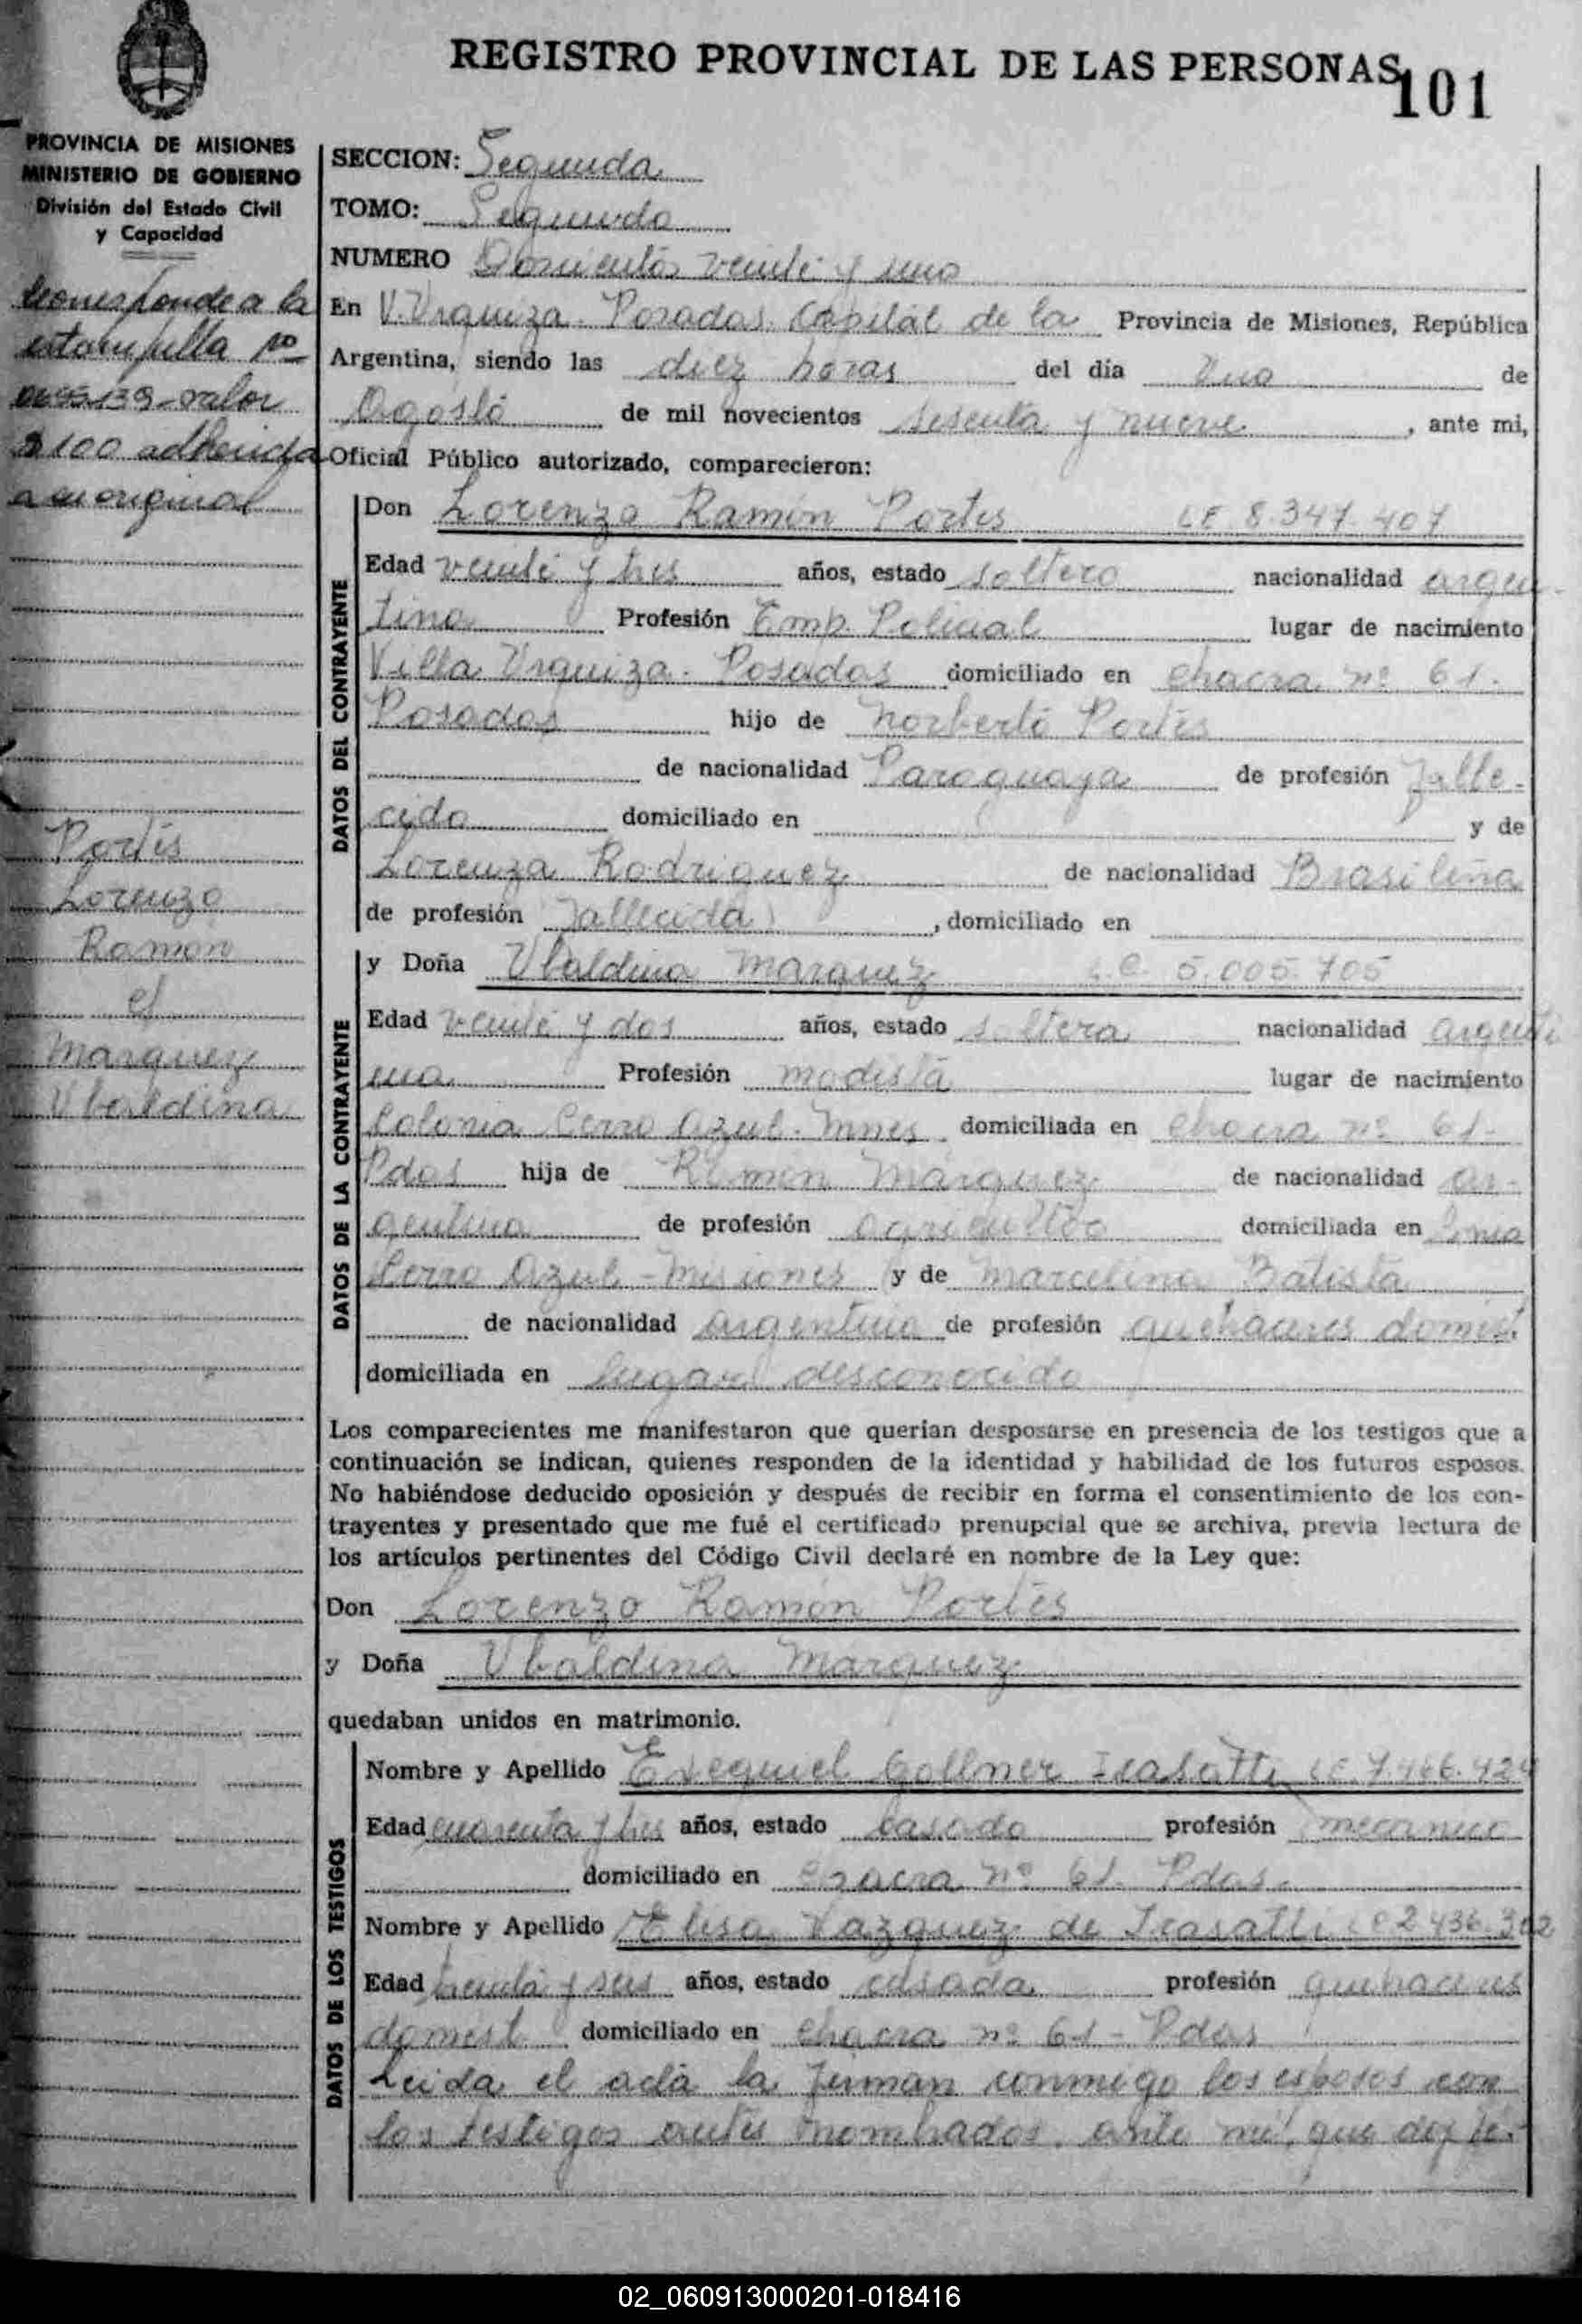 REGISTRO PROVINCIAL DE LAS PERSONAS
101
PROVINCIA DE MISIONES
MINISTERIO DE GOBIERNO
División del Estado Civil
y Capacidad
Corresponde a la
estampilla no
valor
$ 100 adherida
a su original
Portis
Lorenzo
Ramón
c/
Marquez
Ubaldina
SECCION: Segunda
TOMO: Segundo
NUMERO Doscientos veinte y uno
En V. Urquiza. Posadas. Capital de la Provincia de Misiones, República
Argentina, siendo las diez horas del día Uno de
Agosto de mil novecientos sesenta y nueve, ante mi,
Oficial Público autorizado, comparecieron:
DATOS DEL CONTRAYENTE
Don Lorenzo Ramón Portis LE 8.347.407
Edad veinte y tres años, estado soltero nacionalidad argen-
tina Profesión Emp. Policial lugar de nacimiento
Villa Urquiza. Posadas domiciliado en chacra nº 61.
Posadas hijo de Norberto Portis
de nacionalidad Paraguaya de profesión falle-
cido domiciliado en y de
Lorenza Rodriguez de nacionalidad Brasileña
de profesión fallecida, domiciliado en
DATOS DE LA CONTRAYENTE
y Doña Ubaldina Marquez L.C. 5.005.705
Edad veinte y dos años, estado soltera nacionalidad argenti
na Profesión modista lugar de nacimiento
Colonia Cerro Azul. Mnes domiciliada en chacra nº 61-
Pdas hija de Ramón Márquez de nacionalidad ar-
gentina de profesión agricultor domiciliada en
Cerro Azul - Misiones y de Marcelina Batista
de nacionalidad argentina de profesión quehaceres domést.
domiciliada en lugar desconocido
Los comparecientes me manifestaron que querían desposarse en presencia de los testigos que a
continuación se indican, quienes responden de la identidad y habilidad de los futuros esposos.
No habiéndose deducido oposición y después de recibir en forma el consentimiento de los con-
trayentes y presentado que me fué el certificado prenupcial que se archiva, previa lectura de
los artículos pertinentes del Código Civil declaré en nombre de la Ley que:
Don Lorenzo Ramón Portis
y Doña Ubaldina Marquez
quedaban unidos en matrimonio.
DATOS DE LOS TESTIGOS
Nombre y Apellido Exequiel Collner LE. 7.466.424
Edad cuarenta y tres años, estado casado profesión mecanico
domiciliado en chacra nº 61. Pdas.
Nombre y Apellido Elisa Vazquez de
Edad treinta y seis años, estado casada profesión quehaceres
domést domiciliado en chacra nº 61 - Pdas
Leida el acta la firman conmigo los esposos con
los testigos antes nombrados, ante mí, que doy fe.-
02_060913000201-018416